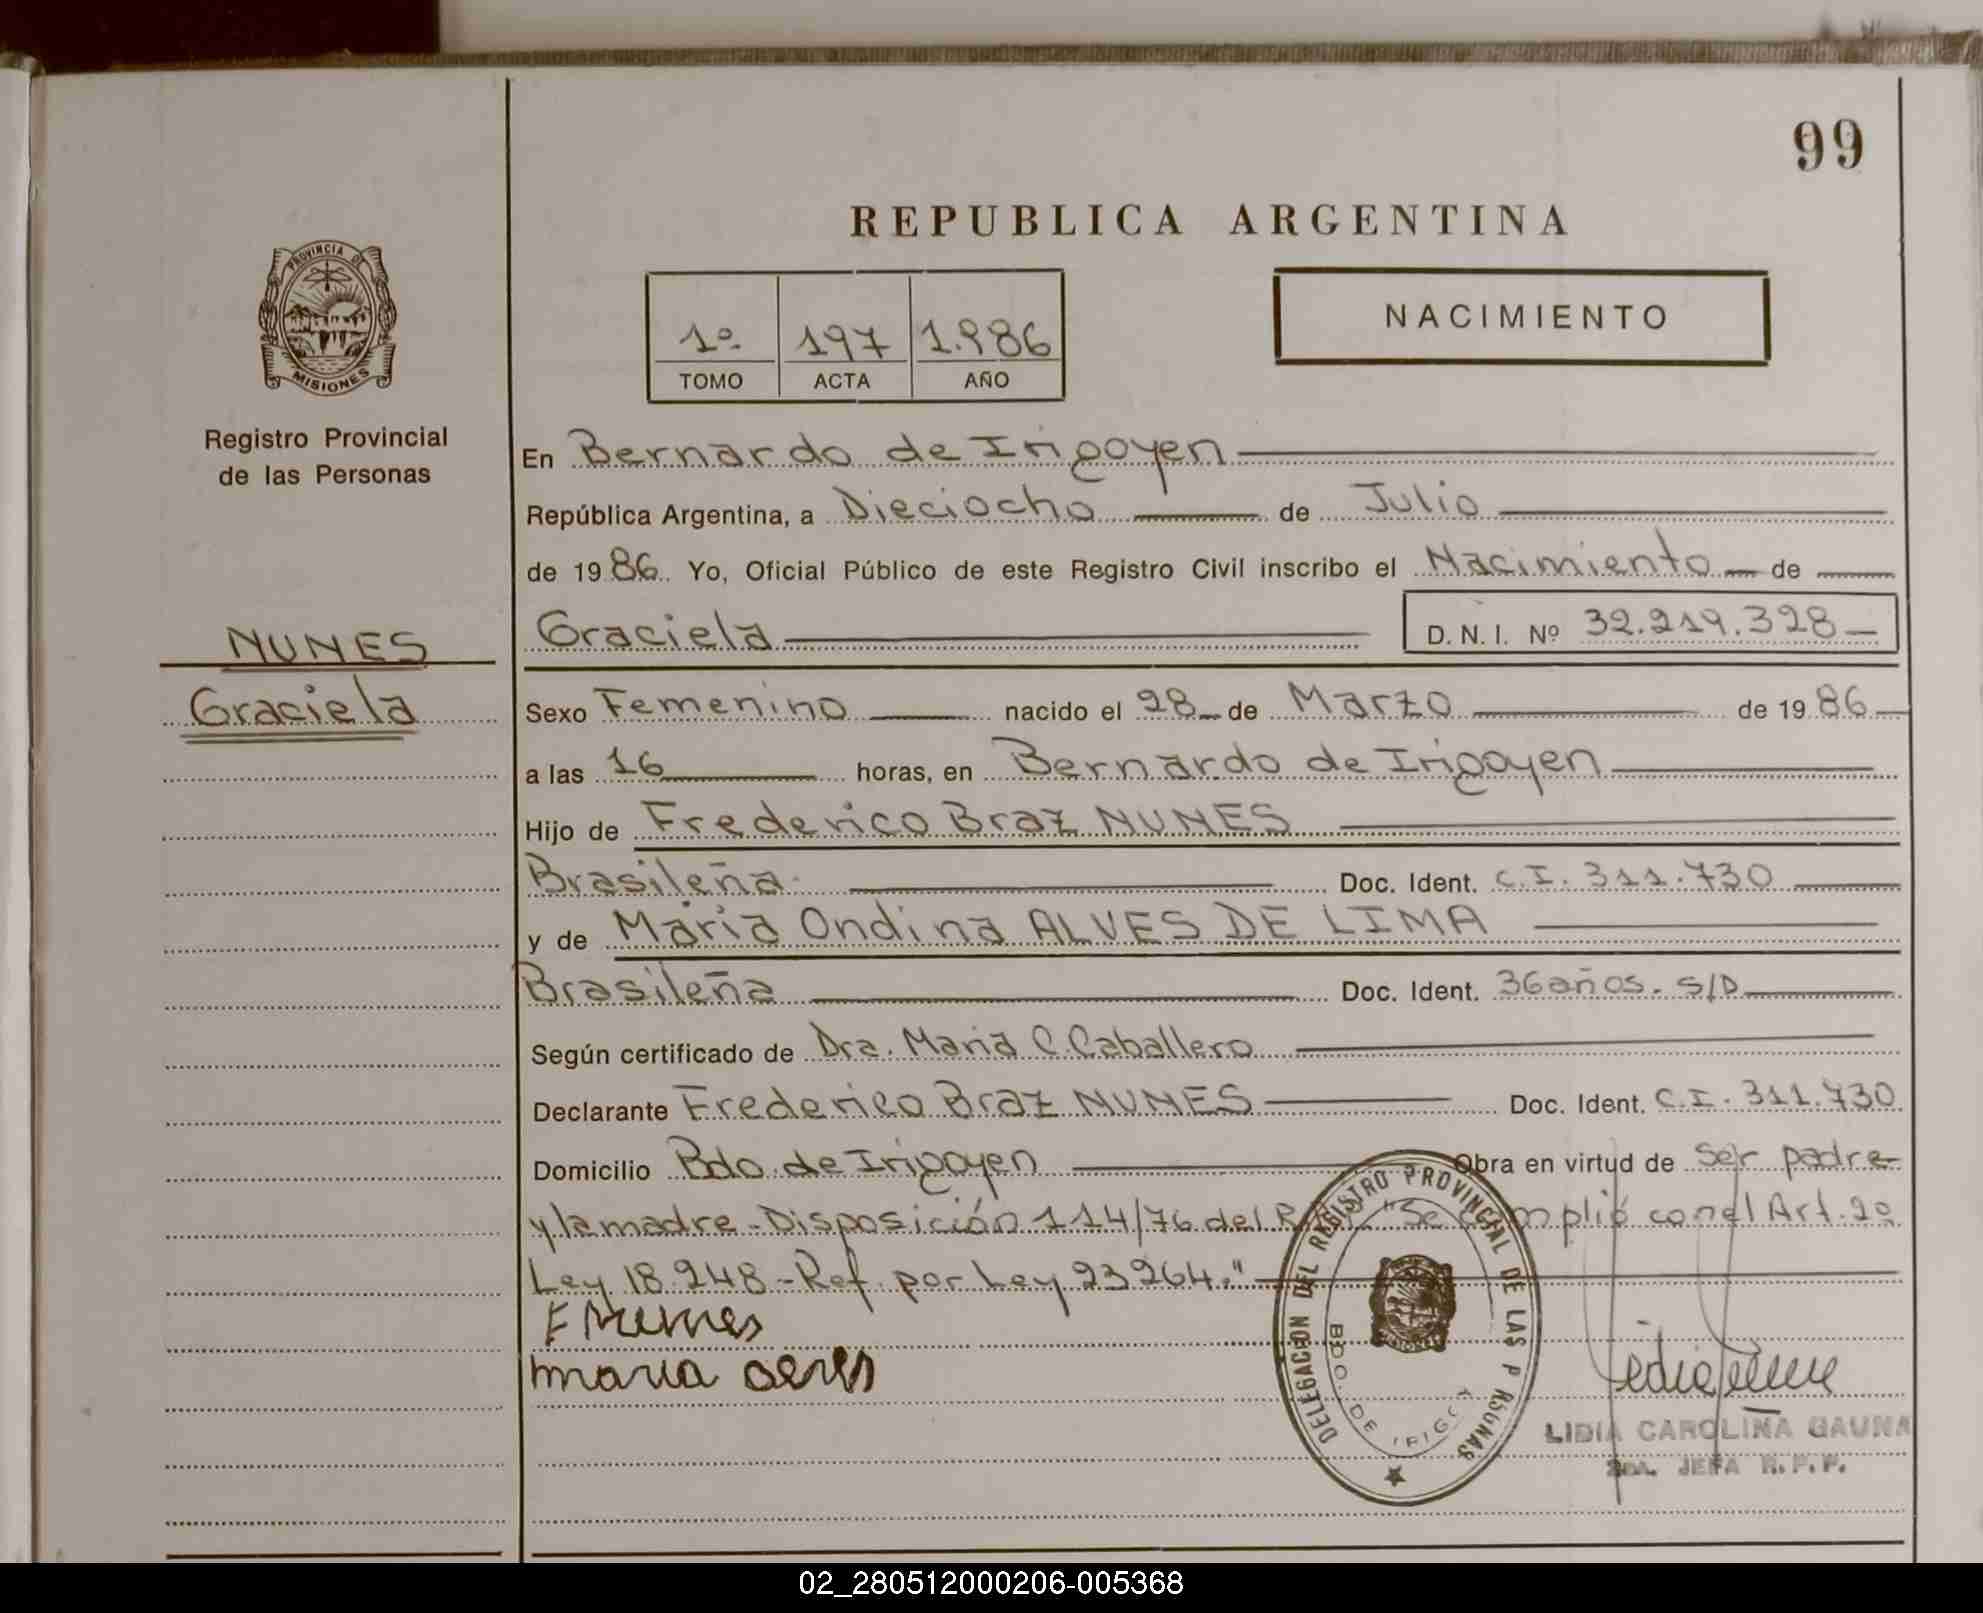 99
REPUBLICA ARGENTINA
PROVINCIA DE
MISIONES
Registro Provincial
de las Personas
1º 197 1.986
TOMO ACTA AÑO
NACIMIENTO
En Bernardo de Irigoyen
República Argentina, a Dieciocho de Julio
de 1986. Yo, Oficial Público de este Registro Civil inscribo el Nacimiento de
Graciela D. N. I. Nº 32.219.328
NUNES
Graciela
Sexo Femenino nacido el 28 de Marzo de 1986
a las 16 horas, en Bernardo de Irigoyen
Hijo de Frederico Braz NUNES
Brasileña Doc. Ident. C.I. 311.730
y de Maria Ondina ALVES DE LIMA
Brasileña Doc. Ident. 36 años. S/D
Según certificado de Dra. Maria C. Caballero
Declarante Frederico Braz NUNES Doc. Ident. C.I. 311.730
Domicilio Bdo. de Irigoyen Obra en virtud de ser padre
y la madre - Disposición 114/76 del "Se cumplió con el Art. 2º
Ley 18.248 - Ref. por Ley 23264."
F Nunes
maria
DELEGACION DEL REGISTRO PROVINCIAL DE LAS P RSONAS
BDO. DE IRIGOY
LIDIA CAROLINA GAUNA
2da. JEFA R.P.P.
02_280512000206-005368